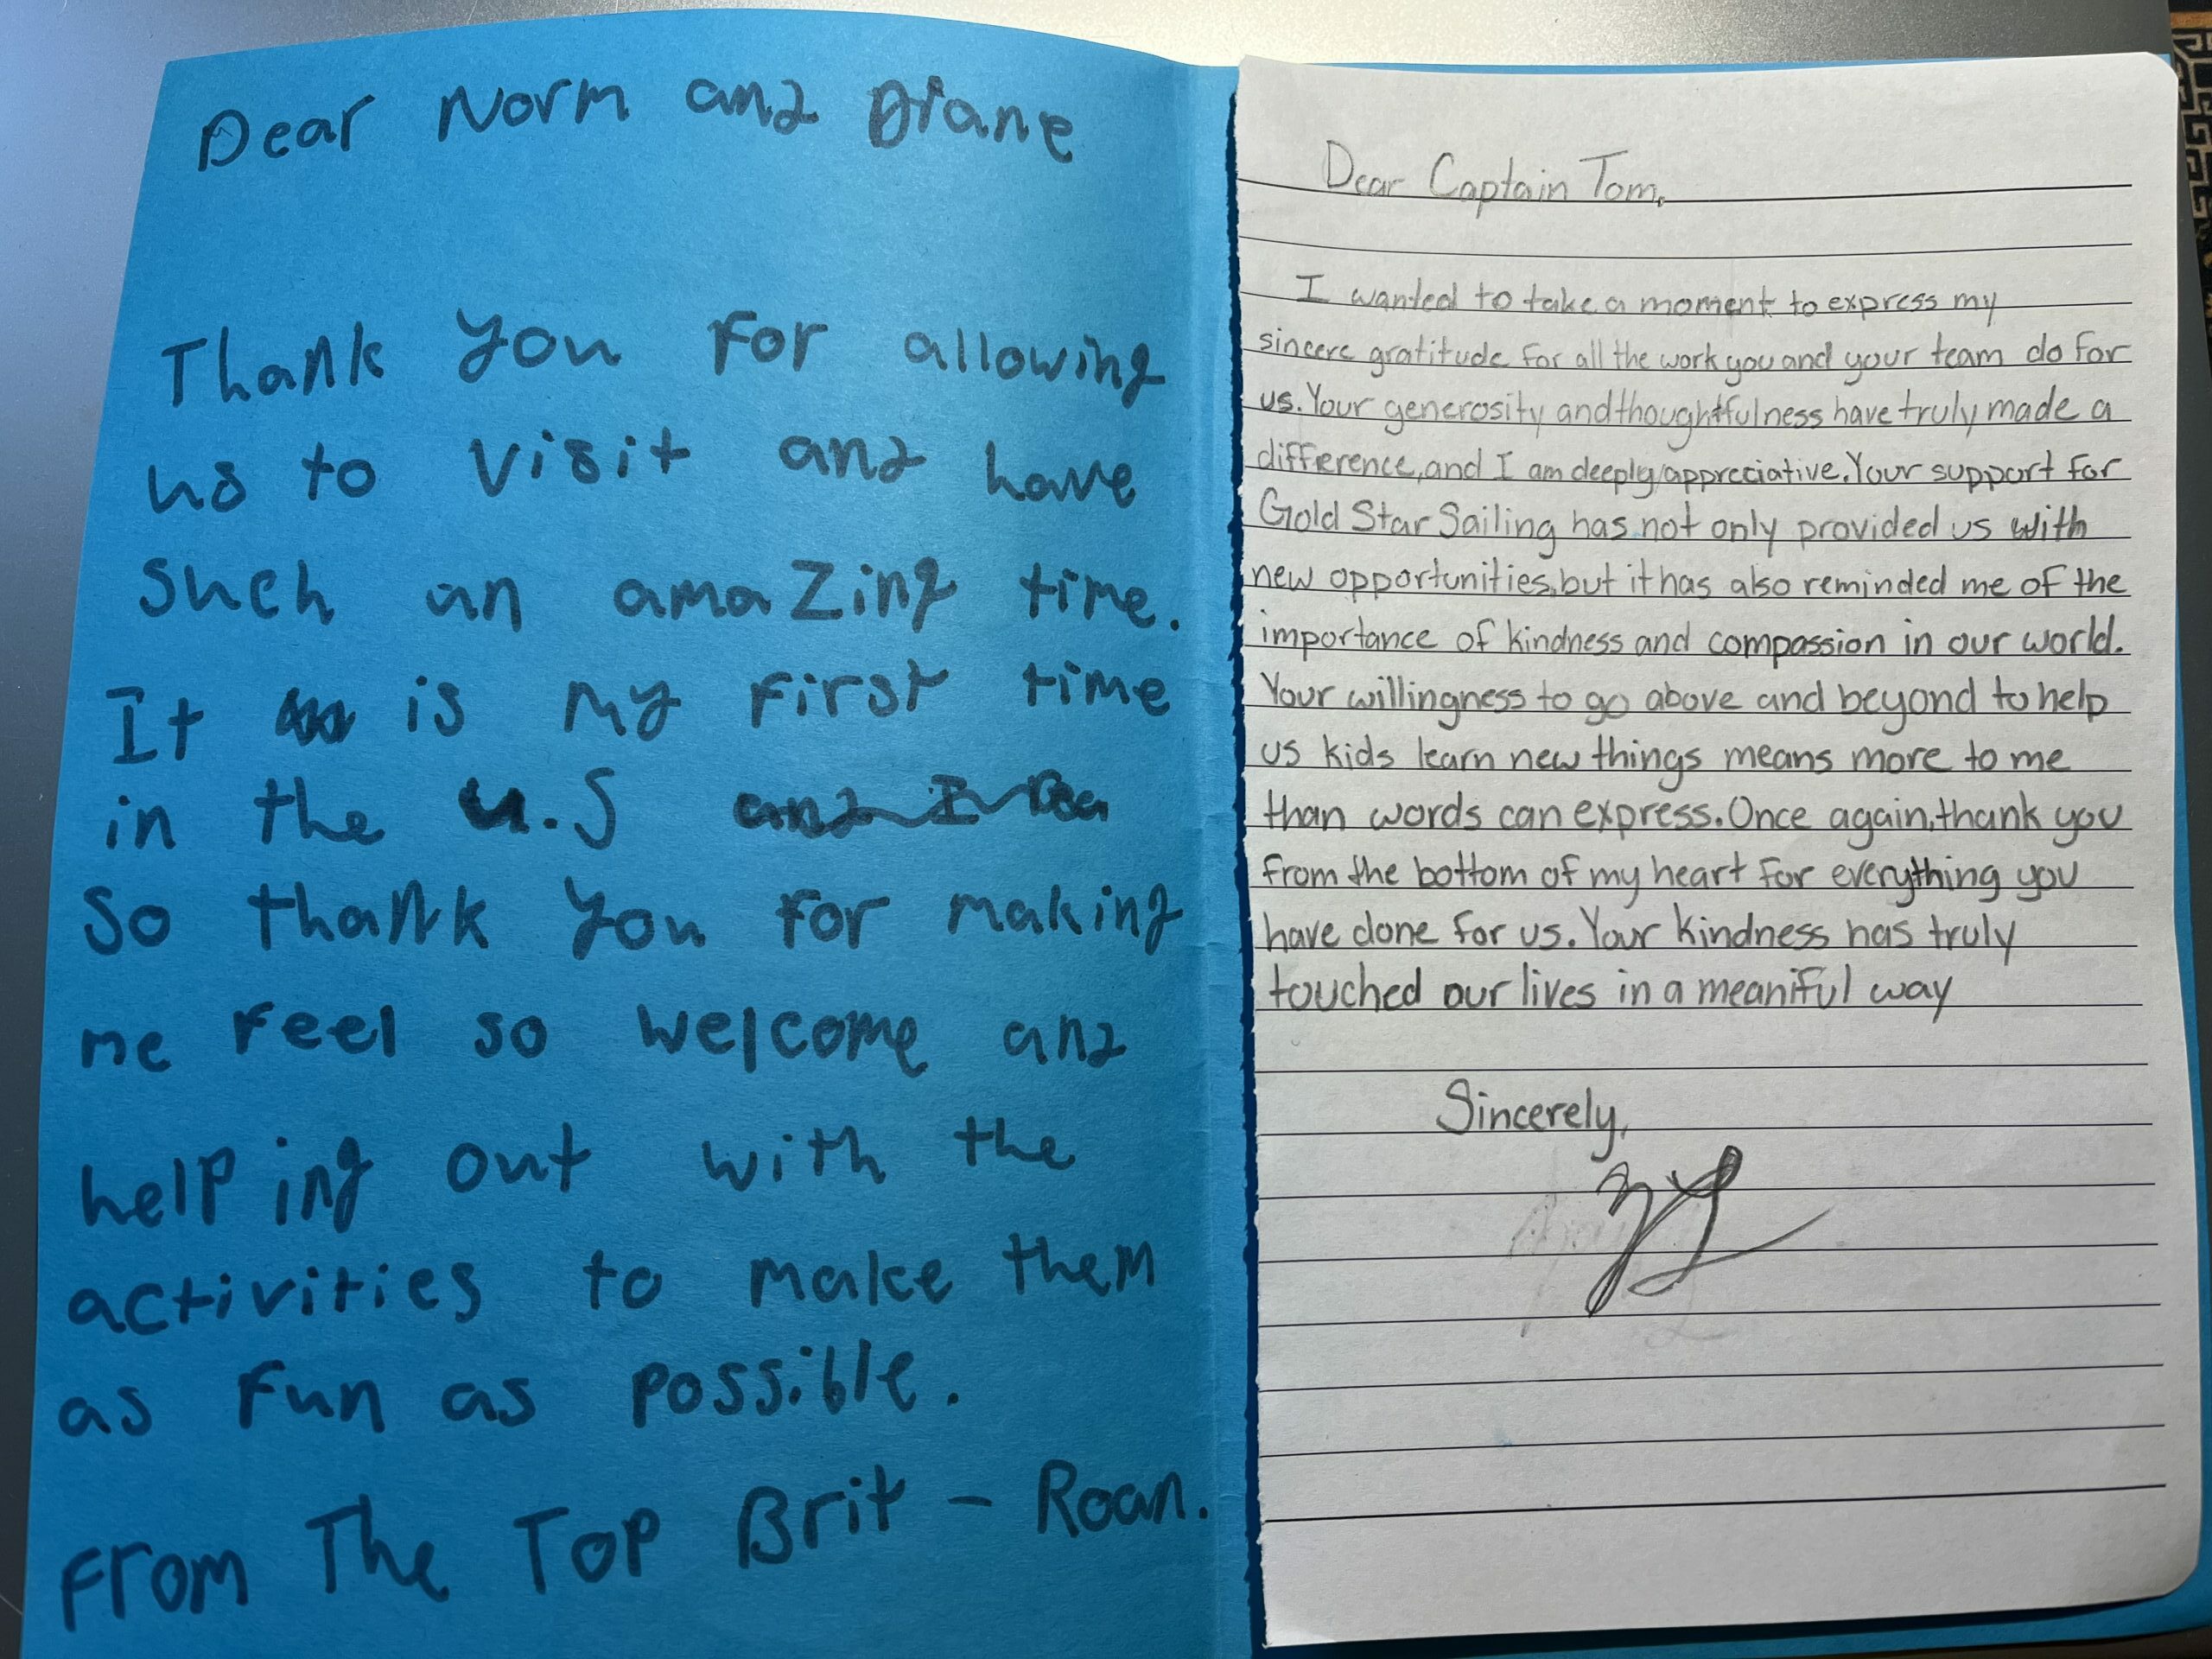 Dear Norm and Diane
Thank you for allowing
us to visit and have
such an amaZing time.
It is my first time
in the u.S and I rea
So thank you for making
me feel so welcome and
helping out with the
activities to make them
as fun as possible.
From The Top Brit - Roan.
Dear Captain Tom,
I wanted to take a moment to express my
sincere gratitude for all the work you and your team do for
us. Your generosity and thoughtfulness have truly made a
difference, and I am deeply appreciative. Your support for
Gold Star Sailing has not only provided us with
new opportunities, but it has also reminded me of the
importance of kindness and compassion in our world.
Your willingness to go above and beyond to help
us kids learn new things means more to me
than words can express. Once again, thank you
from the bottom of my heart for everything you
have done for us. Your kindness has truly
touched our lives in a meaniful way
Sincerely,